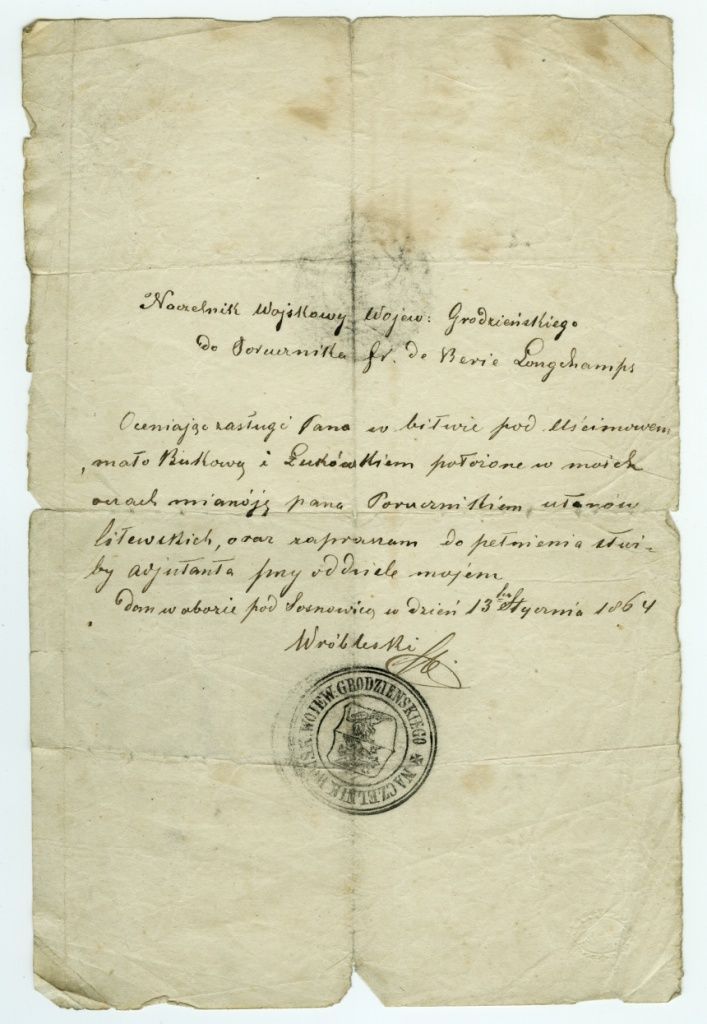 Naczelnik Wojskowy Wojew: Grodzieńskiego
do Porucznika fr. de Berie Longchamps
Oceniając zasługi Pana w bitwie pod Uścimowem
, mało Bukową i Łukówkiem położone w moich
oczach mianóję pana Porucznikiem ułanów
litewskich, oraz zapraszam do pełnienia służ-
by adjutanta przy oddziele mojem
Dan w obozie pód Sosnowicą w dzień 13 Stycznia 1864
Wróbleski
NACZELNIK WOJSK. WOJEW. GRODZIENSKIEGO